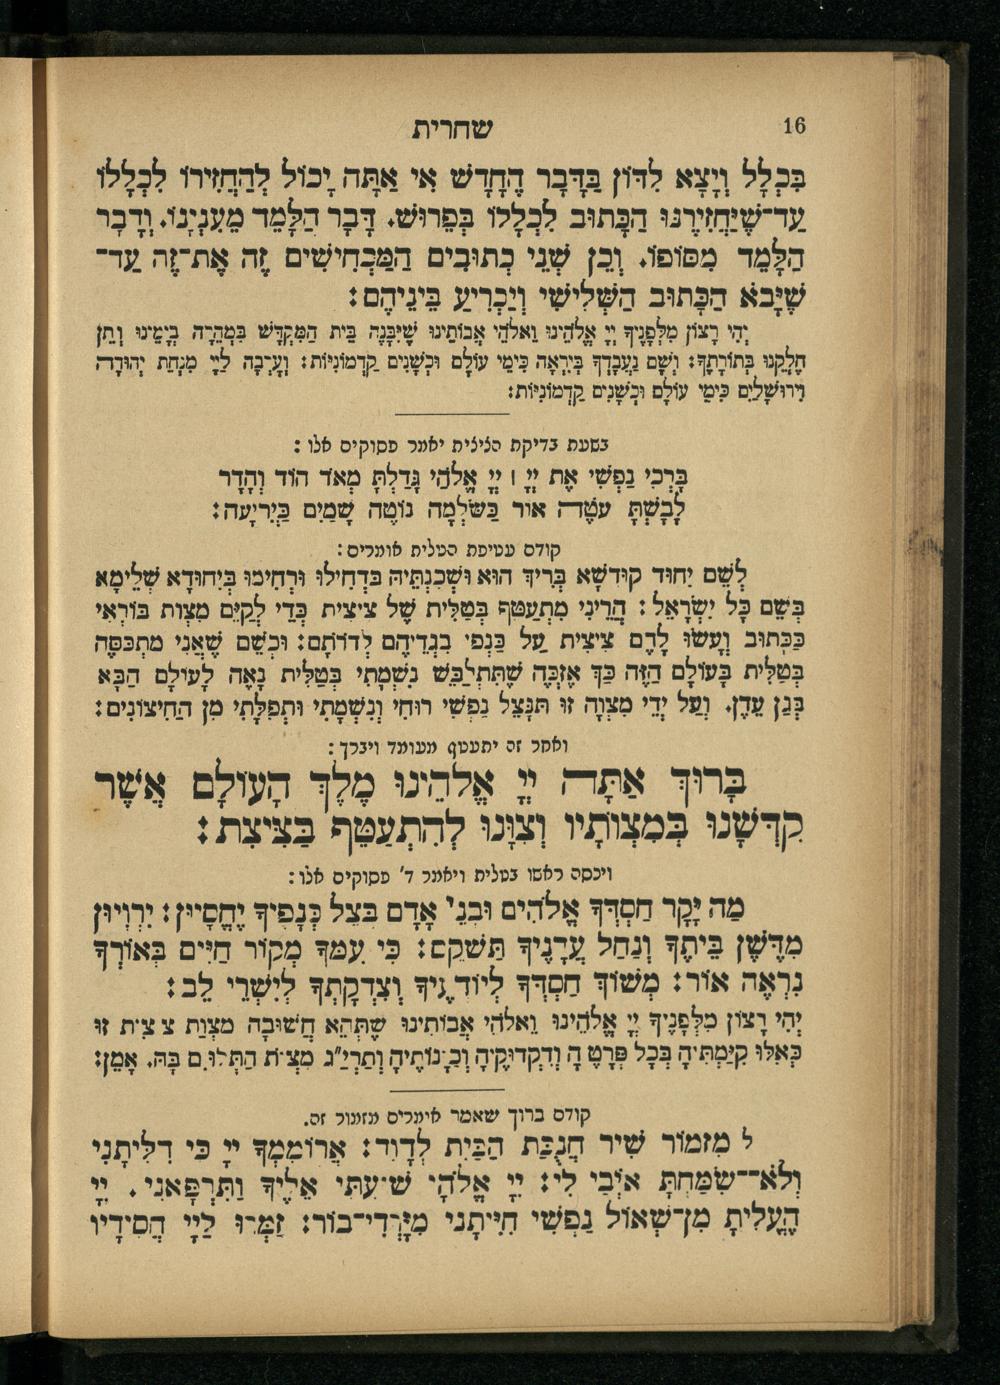 16
שחרית
בִּכְלָל וְיָצָא לִדּוֹן בַּדָּבָר הֶחָדָשׁ אִי אַתָּה יָכוֹל לְהַחֲזִירוֹ לִכְלָלוֹ
עַד־שֶׁיַּחֲזִירֶנּוּ הַכָּתוּב לִכְלָלוֹ בְּפֵרוּשׁ. דָּבָר הַלָּמֵד מֵעִנְיָנוֹ. וְדָבָר
הַלָּמֵד מִסּוֹפוֹ. וְכֵן שְׁנֵי כְתוּבִים הַמַּכְחִישִׁים זֶה אֶת־זֶה עַד־
שֶׁיָּבֹא הַכָּתוּב הַשְּׁלִישִׁי וְיַכְרִיעַ בֵּינֵיהֶם:
יְהִי רָצוֹן מִלְּפָנֶיךָ יְיָ אֱלֹהֵינוּ וֵאלֹהֵי אֲבוֹתֵינוּ שֶׁיִּבָּנֶה בֵּית הַמִּקְדָּשׁ בִּמְהֵרָה בְיָמֵינוּ וְתֵן
חֶלְקֵנוּ בְּתוֹרָתֶךָ: וְשָׁם נַעֲבָדְךָ בְּיִרְאָה כִּימֵי עוֹלָם וּכְשָׁנִים קַדְמוֹנִיּוֹת: וְעָרְבָה לַיְיָ מִנְחַת יְהוּדָה
וִירוּשָׁלָיִם כִּימֵי עוֹלָם וּכְשָׁנִים קַדְמוֹנִיּוֹת:
בשעת בדיקת הציצית יאמר פסוקים אלו:
בָּרְכִי נַפְשִׁי אֶת יְיָ ׀ יְיָ אֱלֹהַי גָּדַלְתָּ מְּאֹד הוֹד וְהָדָר
לָבָשְׁתָּ עֹטֶה אוֹר כַּשַּׂלְמָה נוֹטֶה שָׁמַיִם כַּיְרִיעָה:
קודם עטיפת הטלית אומרים:
לְשֵׁם יִחוּד קוּדְשָׁא בְּרִיךְ הוּא וּשְׁכִנְתֵּיהּ בִּדְחִילוּ וּרְחִימוּ בְּיִחוּדָא שְׁלֵימָא
בְּשֵׁם כָּל יִשְׂרָאֵל: הֲרֵינִי מִתְעַטֵּף בְּטַלִּית שֶׁל צִיצִית כְּדֵי לְקַיֵּם מִצְוַת בּוֹרְאִי
כַּכָּתוּב וְעָשׂוּ לָהֶם צִיצִית עַל כַּנְפֵי בִגְדֵיהֶם לְדוֹרֹתָם: וּכְשֵׁם שֶׁאֲנִי מִתְכַּסֶּה
בְּטַלִּית בָּעוֹלָם הַזֶּה כַּךְ אֶזְכֶּה שֶׁתִּתְלַבֵּשׁ נִשְׁמָתִי בְּטַלִּית נָאֶה לָעוֹלָם הַבָּא
בְּגַן עֵדֶן. וְעַל יְדֵי מִצְוָה זוּ תִּנָּצֵל נַפְשִׁי רוּחִי וְנִשְׁמָתִי וּתְפִלָּתִי מִן הַחִיצוֹנִים:
ואחר זה יתעטף מעומד ויברך:
בָּרוּךְ אַתָּה יְיָ אֱלֹהֵינוּ מֶלֶךְ הָעוֹלָם אֲשֶׁר
קִדְּשָׁנוּ בְּמִצְוֹתָיו וְצִוָּנוּ לְהִתְעַטֵּף בַּצִּיצִת:
ויכסה ראשו בטלית ויאמר ד' פסוקים אלו:
מַה יָּקָר חַסְדְּךָ אֱלֹהִים וּבְנֵי אָדָם בְּצֵל כְּנָפֶיךָ יֶחֱסָיוּן: יִרְוְיוּן
מִדֶּשֶׁן בֵּיתֶךָ וְנַחַל עֲדָנֶיךָ תַשְׁקֵם: כִּי עִמְּךָ מְקוֹר חַיִּים בְּאוֹרְךָ
נִרְאֶה אוֹר: מְשׁוֹךְ חַסְדְּךָ לְיוֹדְעֶיךָ וְצִדְקָתְךָ לְיִשְׁרֵי לֵב:
יְהִי רָצוֹן מִלְּפָנֶיךָ יְיָ אֱלֹהֵינוּ וֵאלֹהֵי אֲבוֹתֵינוּ שֶׁתְּהֵא חֲשׁוּבָה מִצְוַת צִצִית זוּ
כְּאִלּוּ קִיַּמְתִּיהָ בְּכָל פְּרָטֶיהָ וְדִקְדּוּקֶיהָ וְכַוָּנוֹתֶיהָ וְתַרְיַ״ג מִצְוֹת הַתְּלוּיִם בָּהּ. אָמֵן:
קודם ברוך שאמר אומרים מזמור זה.
ל מִזְמוֹר שִׁיר חֲנֻכַּת הַבַּיִת לְדָוִד: אֲרוֹמִמְךָ יְיָ כִּי דִלִּיתָנִי
וְלֹא־שִׂמַּחְתָּ אֹיְבַי לִי: יְיָ אֱלֹהָי שִׁוַּעְתִּי אֵלֶיךָ וַתִּרְפָּאֵנִי. יְיָ
הֶעֱלִיתָ מִן־שְׁאוֹל נַפְשִׁי חִיִּיתַנִי מִיָּרְדִי־בוֹר: זַמְּרוּ לַיְיָ חֲסִידָיו